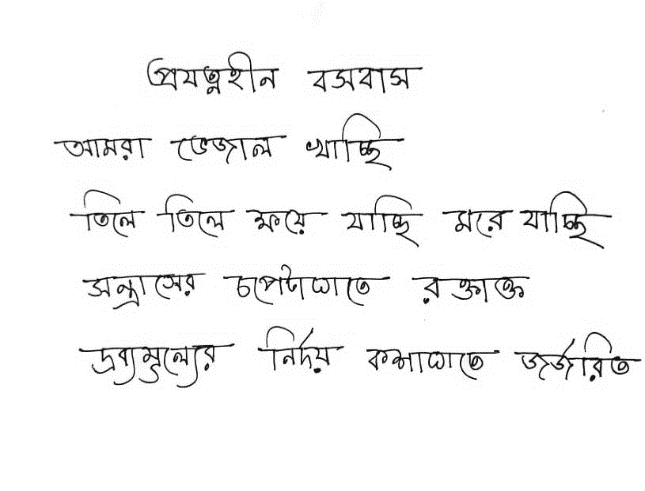 প্রযত্নহীন বসবাস
আমরা ভেজাল খাচ্ছি
তিলে তিলে ক্ষয়ে যাচ্ছি মরে যাচ্ছি
সন্ত্রাসের চপেটাঘাতে রক্তাক্ত
দ্রব্যমূল্যের নির্দয় কষাঘাতে জর্জরিত